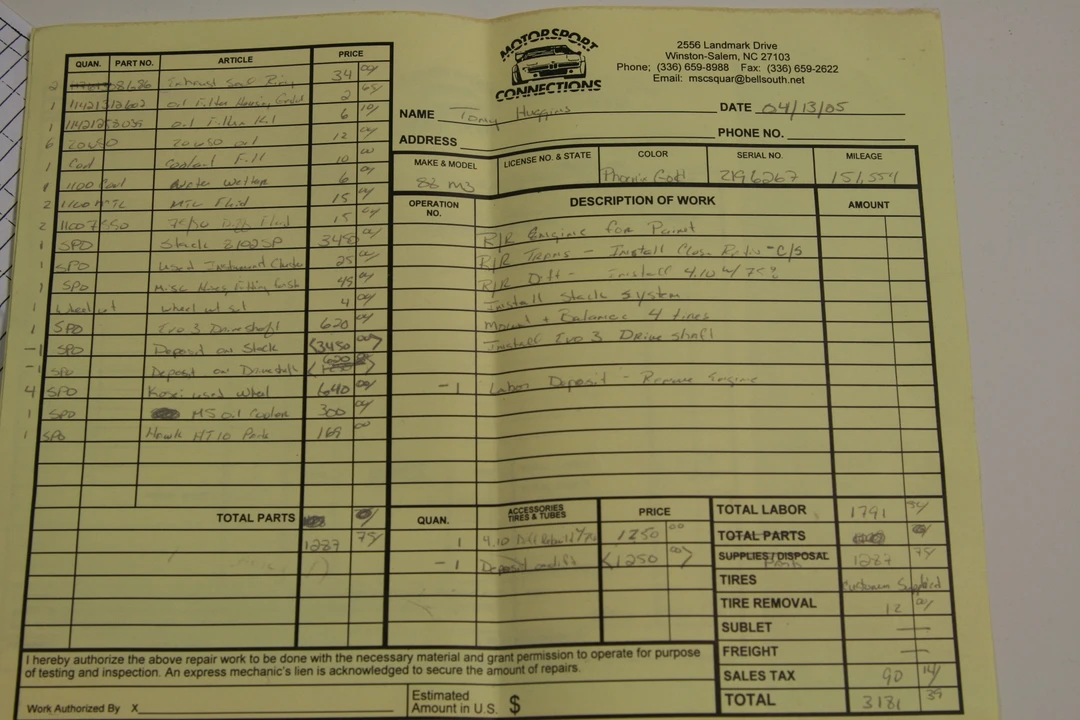 MOTORSPORT
CONNECTIONS
2556 Landmark Drive
Winston-Salem, NC 27103
Phone; (336) 659-8988 Fax: (336) 659-2622
Email: mscsquar@bellsouth.net
NAME Tony Huggins
DATE 04/13/05
ADDRESS
PHONE NO.
MAKE & MODEL LICENSE NO. & STATE COLOR SERIAL NO. MILEAGE
88 M3 Phoenix Gold 2196267 151,554
QUAN. PART NO. ARTICLE PRICE
2 Seal Ring 34 00/
1 11421312602 oil Filter Housing 2 65/
1 oil Filter Kit 6 10/
6 20W50 20W50 oil 12 00/
1 Cool Coolant Full 10 00
1 1100 Cool Water Wetter 6 00/
2 1100 MTL MTL Fluid 15 00/
2 75/90 Diff Fluid 15 00/
1 SPO Stack 8102SP 3450 00/
1 SPO Used Instrument Cluster 25 00/
1 SPO Misc Hoses, Fitting 45 00/
1 wheel nut wheel nut set 4 00/
1 SPO Evo 3 Driveshaft 620 00/
-1 SPO Deposit on Stack <3450 00>
-1 SPO Deposit on Driveshaft 620
4 SPO Kosei used wheel 640 00/
1 SPO M5 oil Cooler 300 00/
1 SPO Hawk HT10 Pads 169 00
TOTAL PARTS
1287 75/
OPERATION NO. DESCRIPTION OF WORK AMOUNT
R/R Engine for Paint
R/R Trans - Install Close Ratio - C/S
R/R Diff - Install 4.10 w/ 75%
Install Stack System
Mount + Balance 4 tires
Install Evo 3 Drive shaft
-1 Labor Deposit - Remove Engine
QUAN. ACCESSORIES TIRES & TUBES PRICE
1 4.10 Diff Rebuild 1250 00
-1 Deposit on diff <1250 00/>
TOTAL LABOR 1791
TOTAL PARTS
SUPPLIES/DISPOSAL 1287 75/
Parts
TIRES Customer Supplied
TIRE REMOVAL 12 00/
SUBLET —
FREIGHT —
SALES TAX 90 14/
TOTAL 3181 39
I hereby authorize the above repair work to be done with the necessary material and grant permission to operate for purpose
of testing and inspection. An express mechanic's lien is acknowledged to secure the amount of repairs.
Work Authorized By X
Estimated
Amount in U.S. $